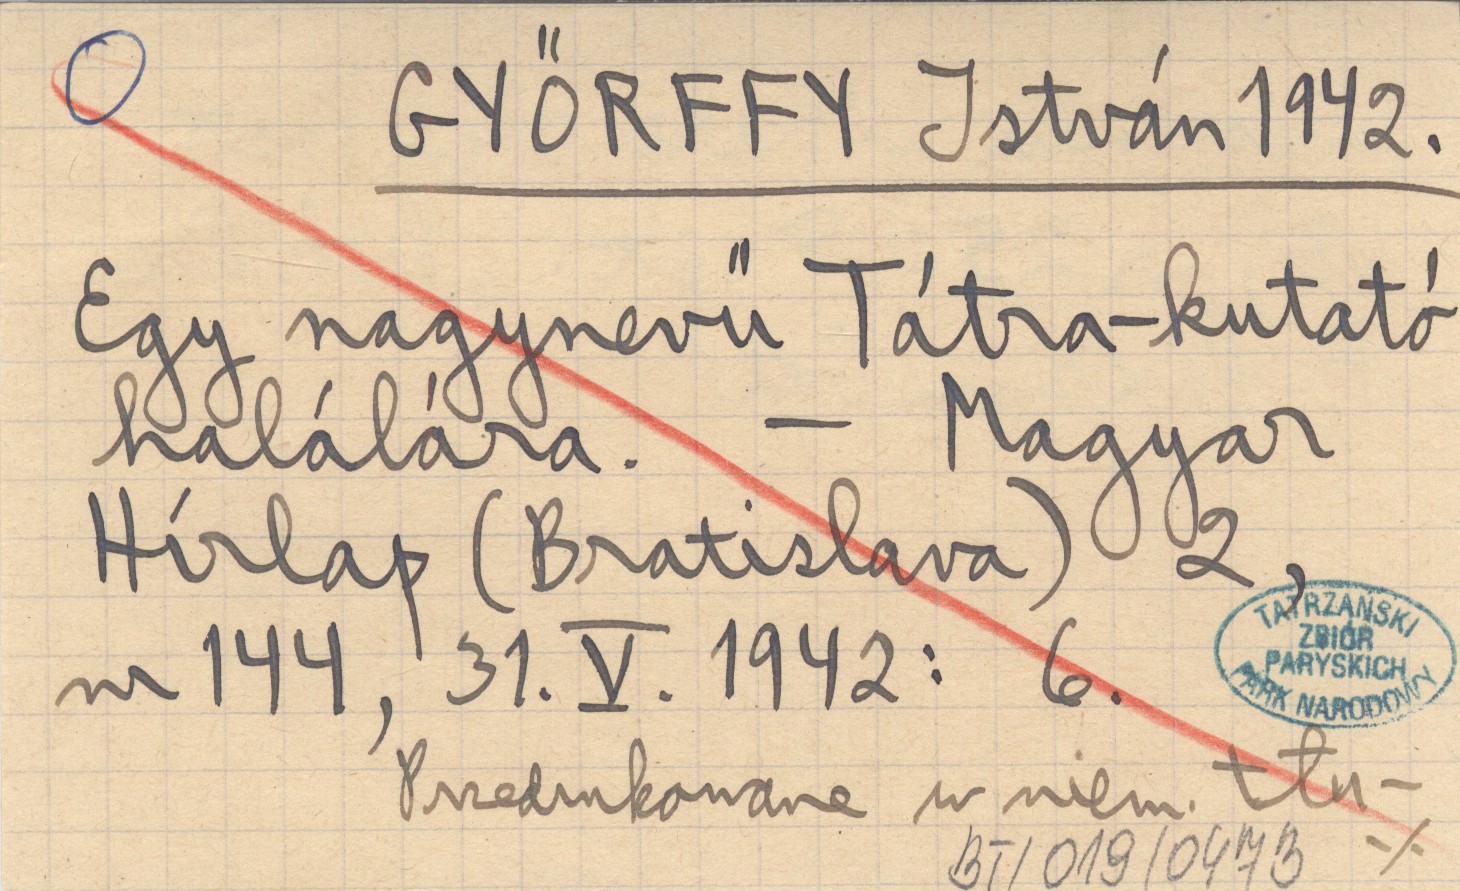 GYŐRFFY István 1942.
Egy nagynevű Tátra-kutató
halálára. — Magyar
Hírlap (Bratislava) 2,
nr 144, 31. V. 1942: 6.
TATRZAŃSKI
ZBIÓR
PARYSKICH
PARK NARODOWY
Przedrukowane w niem. tłu-
BT/019/0473 -/-